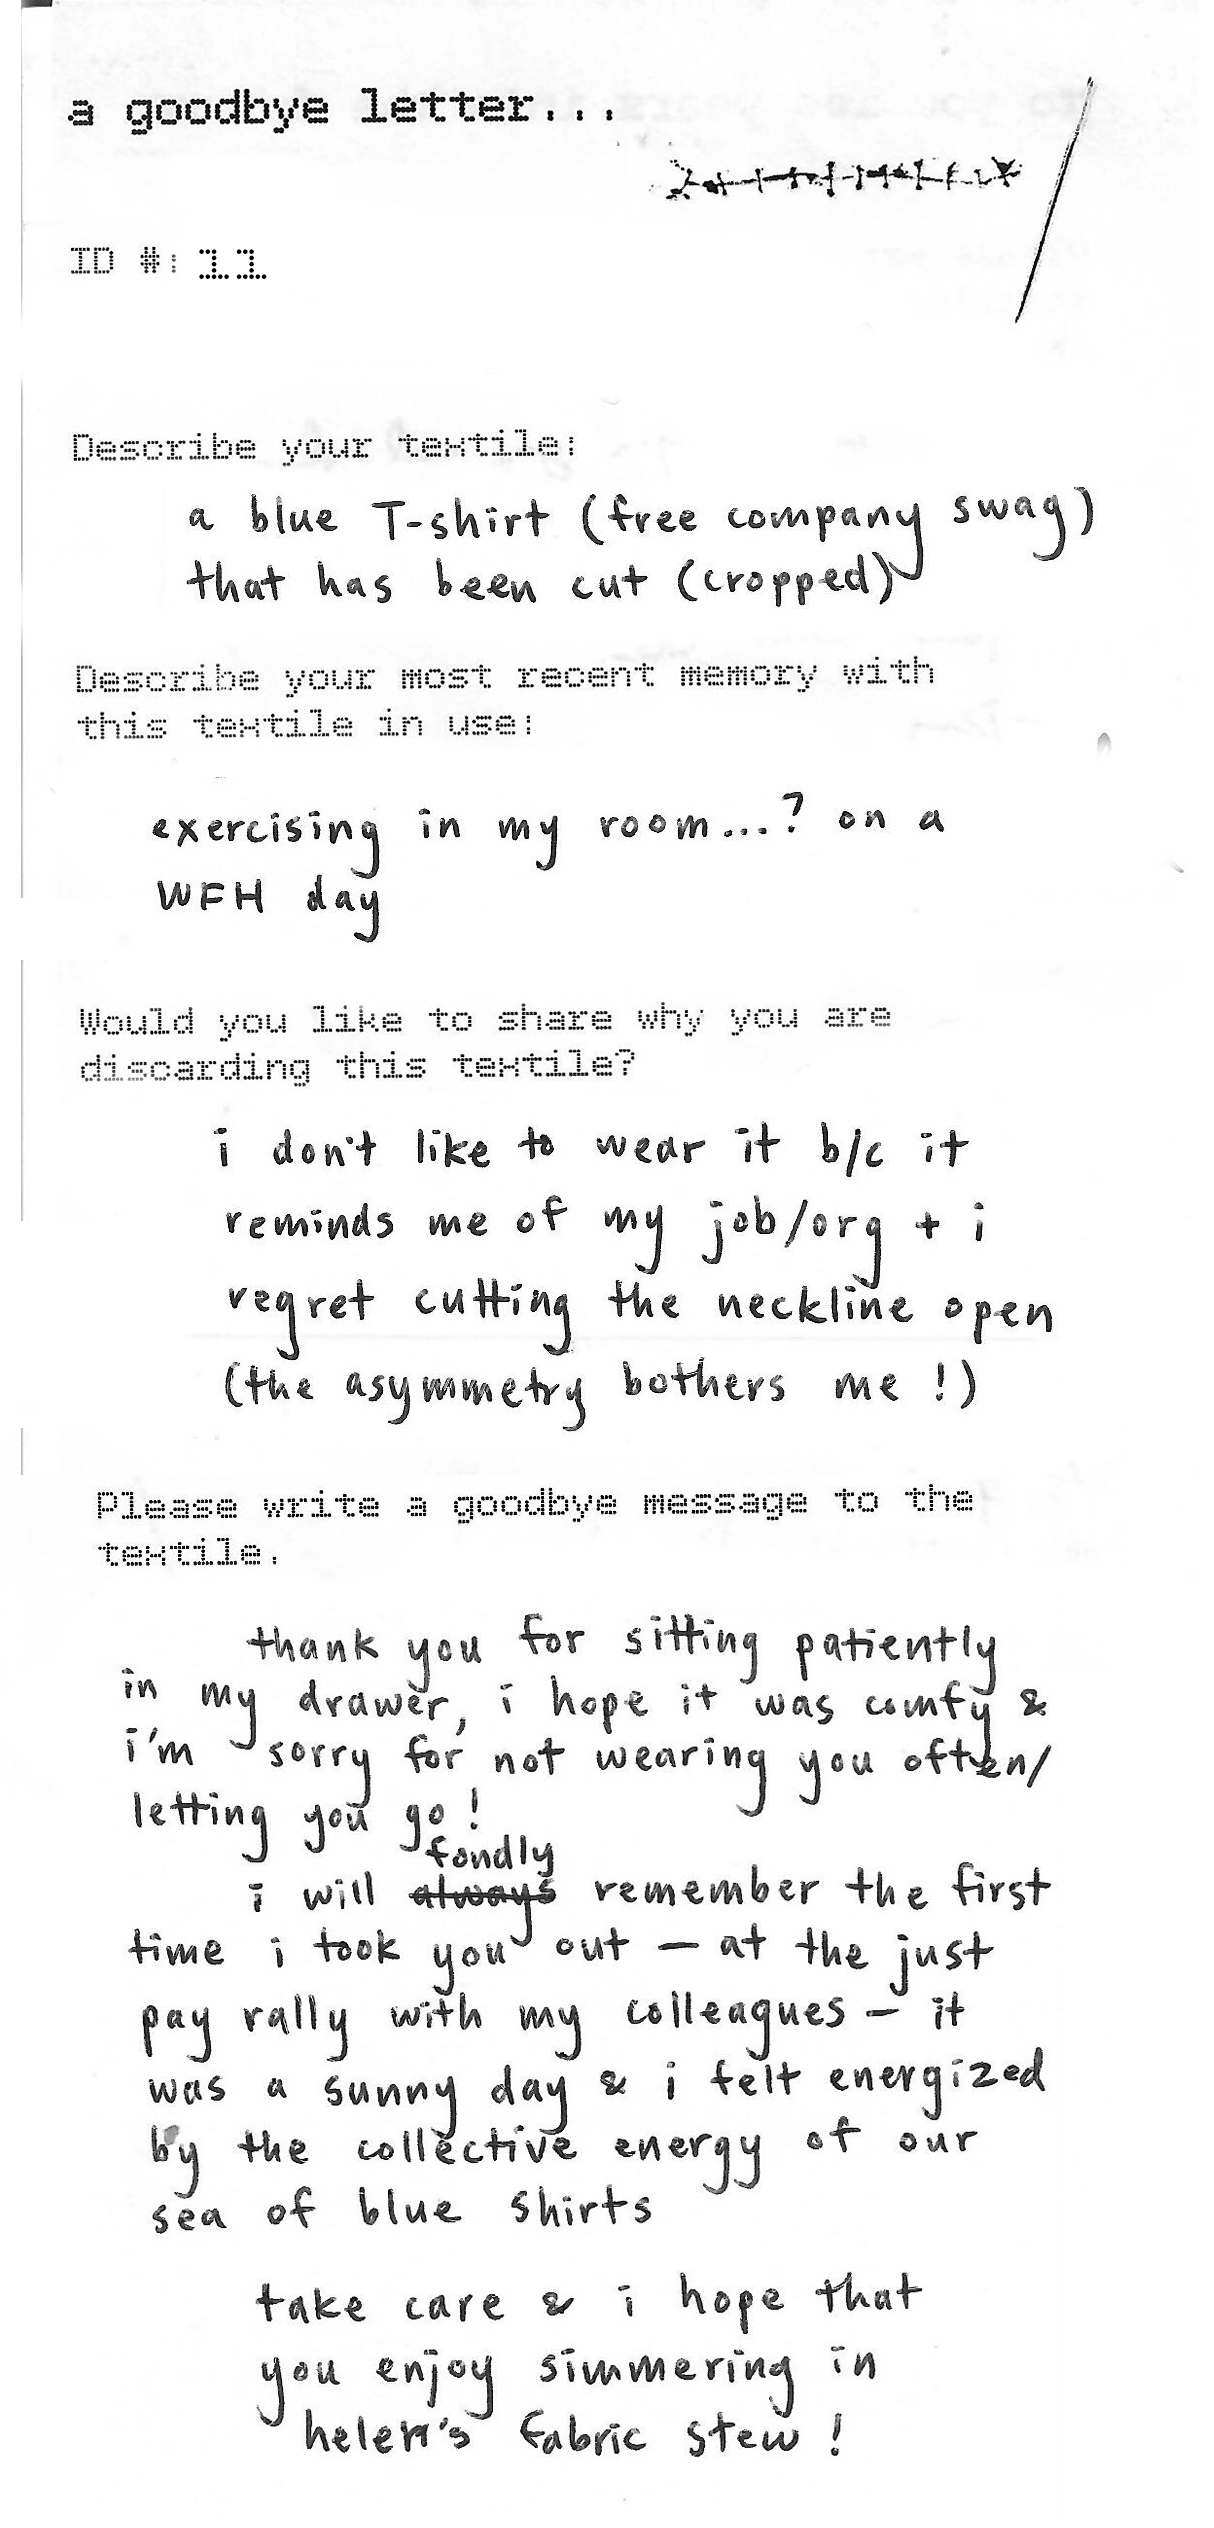 a goodbye letter...
ID #: 11
Describe your textile:
a blue T-shirt (free company swag)
that has been cut (cropped)
Describe your most recent memory with
this textile in use:
exercising in my room...? on a
WFH day
Would you like to share why you are
discarding this textile?
i don't like to wear it b/c it
reminds me of my job/org + i
regret cutting the neckline open
(the asymmetry bothers me!)
Please write a goodbye message to the
textile.
thank you for sitting patiently
in my drawer, i hope it was comfy &
i'm sorry for not wearing you often/
letting you go!
fondly
i will always remember the first
time i took you out — at the just
pay rally with my colleagues — it
was a sunny day & i felt energized
by the collective energy of our
sea of blue shirts
take care & i hope that
you enjoy simmering in
helen's fabric stew!